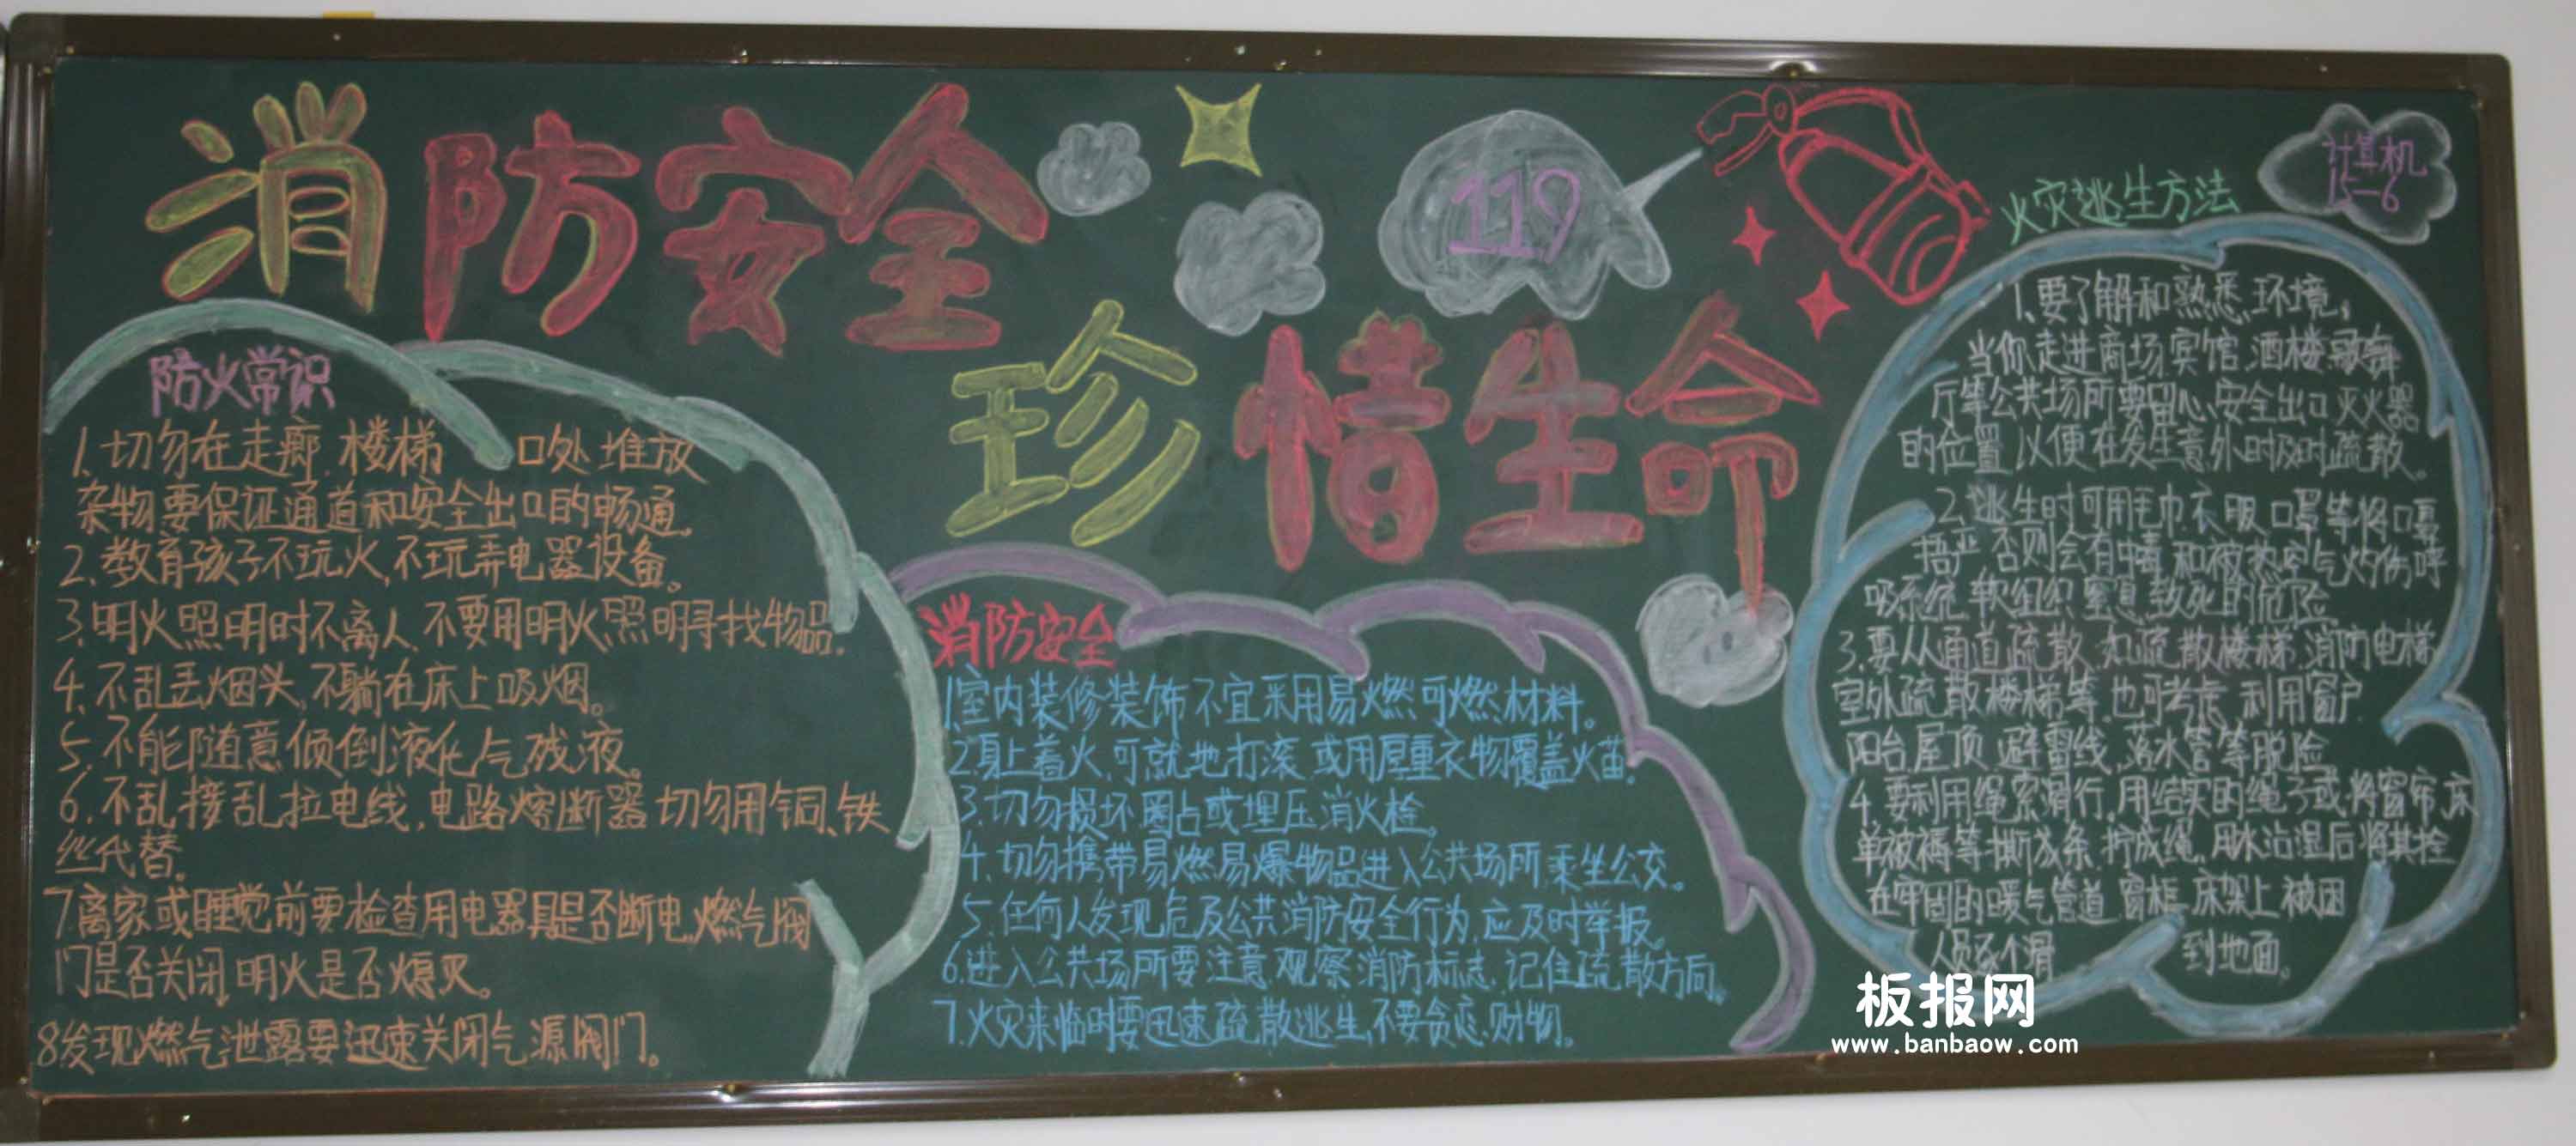 消防安全
珍惜生命
119
计算机
15—6
防火常识
1.切勿在走廊.楼梯 口处堆放
杂物要保证通道和安全出口的畅通。
2.教育孩子不玩火,不玩弄电器设备。
3.明火照明时不离人.不要用明火照明寻找物品。
4.不乱丢烟头,不躺在床上吸烟。
5.不能随意倾倒液化气残液。
6.不乱接乱拉电线,电路熔断器切勿用铜、铁
丝代替。
7离家或睡觉前要检查用电器具是否断电.燃气阀
门是否关闭,明火是否熄灭。
8发现燃气泄露要迅速关闭气源阀门。
消防安全
1.室内装修装饰不宜采用易燃可燃材料。
2身上着火.可就地打滚 或用厚重衣物覆盖火苗。
3.切勿损坏圈占或埋压消火栓。
4.切勿携带易燃易爆物品进入公共场所乘坐公交。
5.任何人发现危及公共消防安全行为.应及时举报。
6.进入公共场所要注意观察消防标志.记住疏散方向。
7.火灾来临时要迅速疏散逃生.不要贪恋财物。
火灾逃生方法
1.要了解和熟悉环境。
当你走进商场宾馆 酒楼歌舞
厅等公共场所要留心安全出口 灭火器
的位置 以便在发生意外时及时疏散。
2.逃生时可用毛巾 衣服 口罩等将口鼻
捂严 否则会有中毒和被热空气灼伤呼
吸系统 软组织窒息致死的危险
3.要从通道疏散 如疏散楼梯 消防电梯
室外疏散楼梯等.也可考虑利用窗户
阳台 屋顶 避雷线 落水管等脱险
4.要利用绳索滑行.用结实的绳子或将窗帘.床
单被褥等撕成条.拧成绳.用水沾湿后将其拴
在牢固的暖气管道 窗框 床架上 被困
人员逐个滑 到地面。
板报网
www.banbaow.com